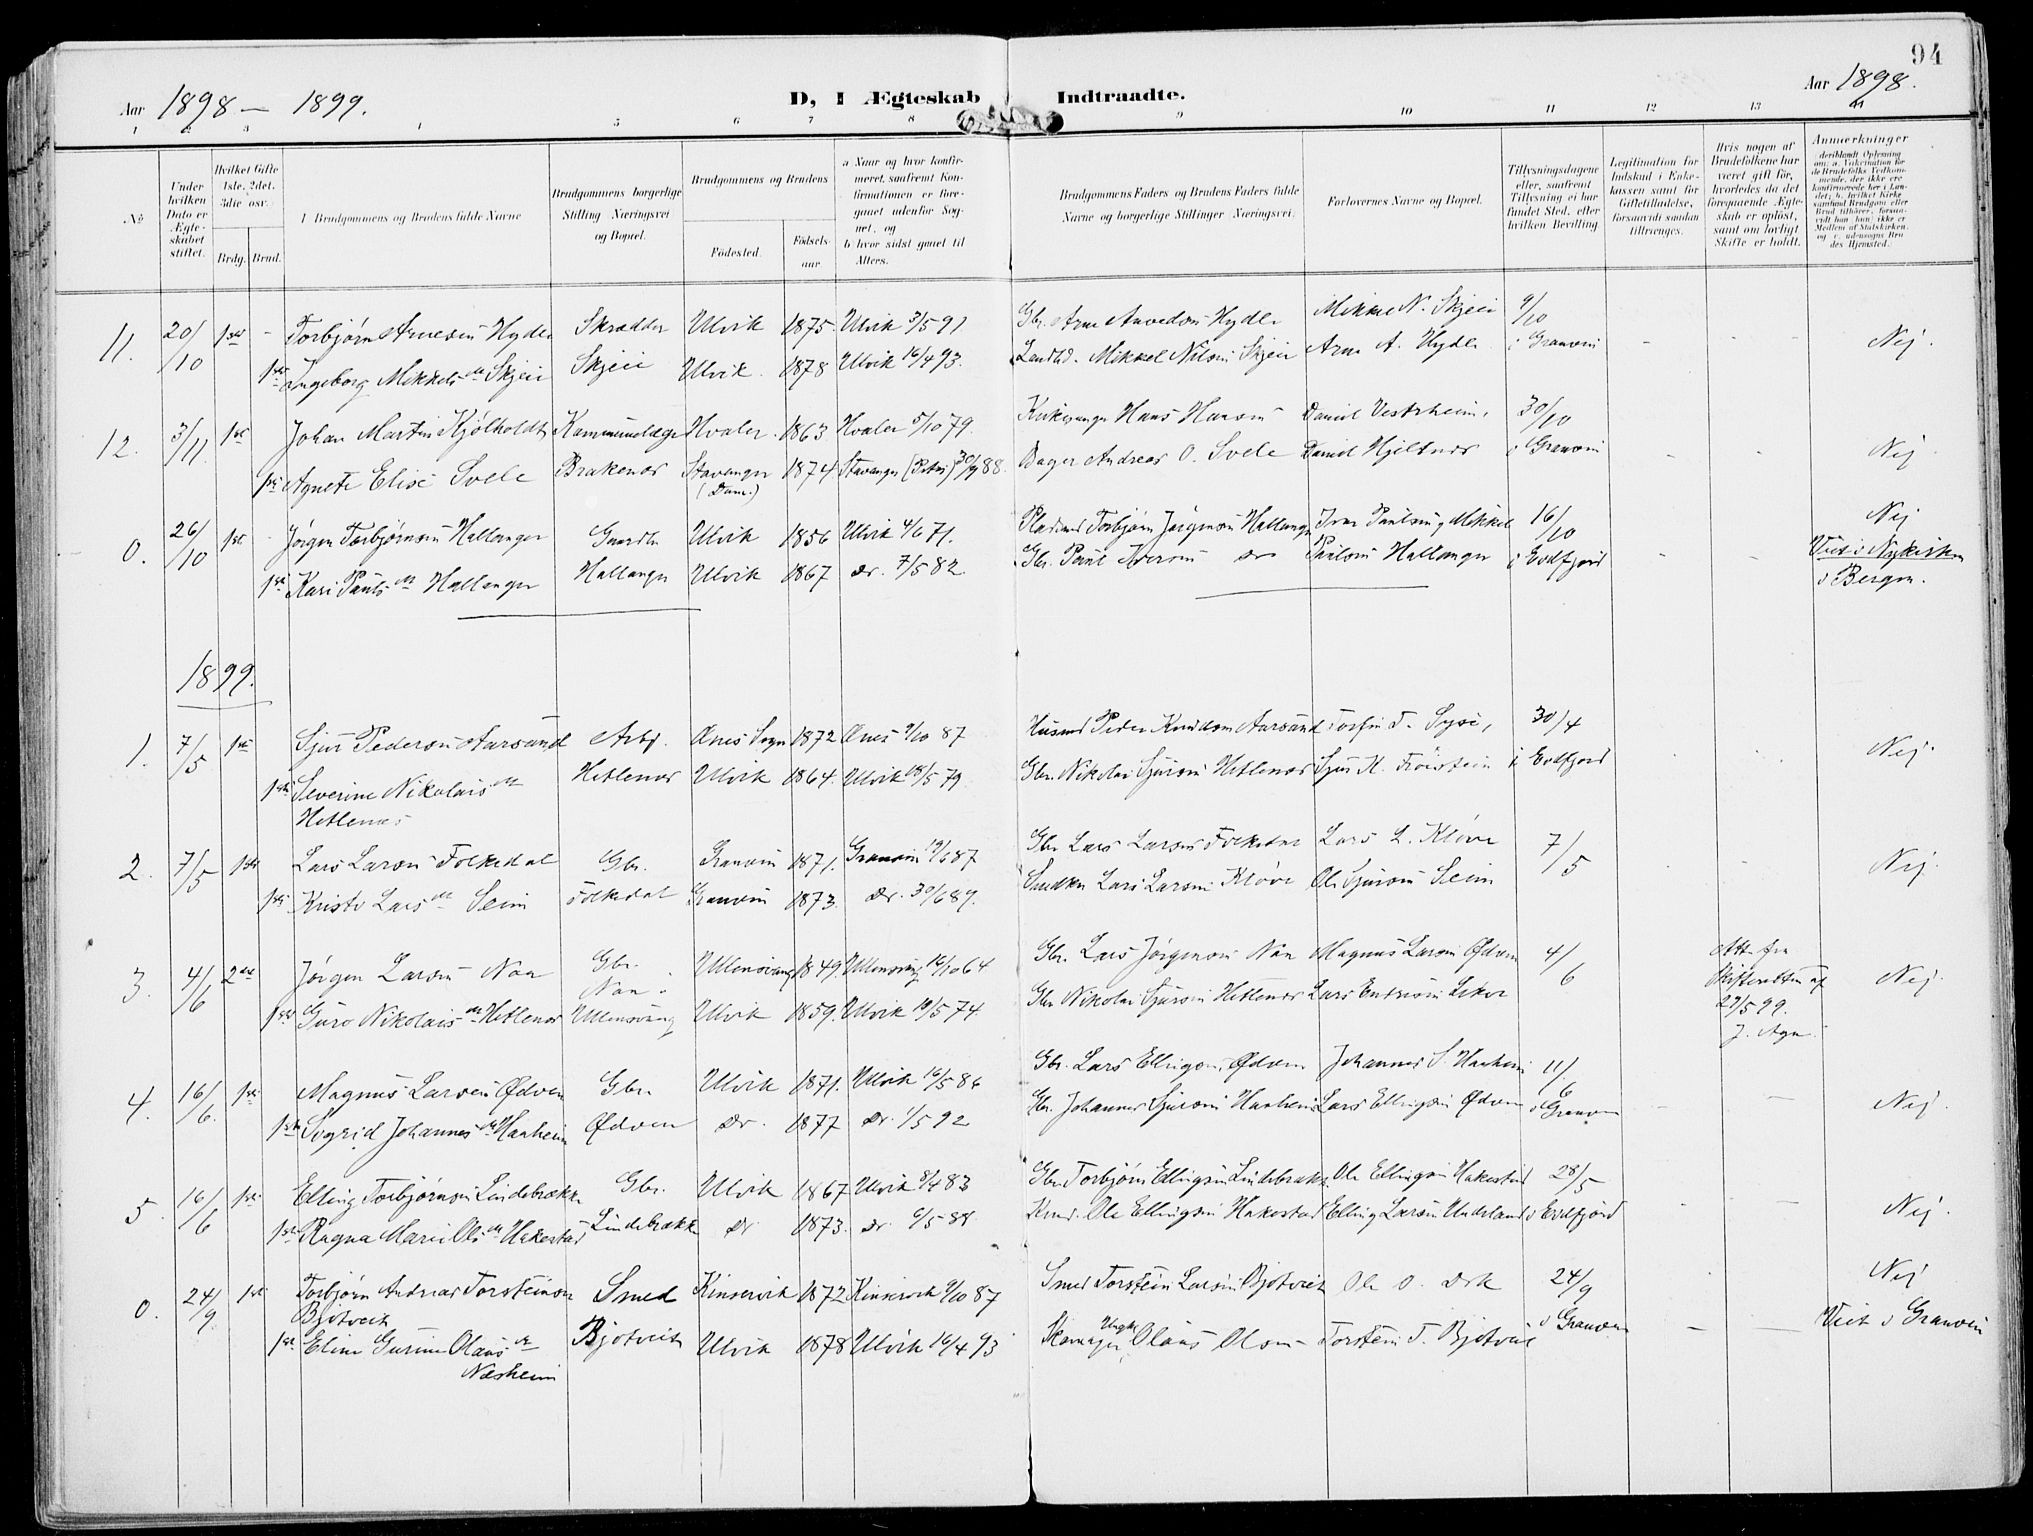 94
Aar 1898 – 1899.
D, I Ægteskab Indtraadte.
Aar 1898.
1 2 3 4 5 6 7 8 9 10 11 12 13 14
No
Under hvilken Dato er Ægteskabet stiftet.
Hvilket Gifte 1ste, 2det, 3die osv.
Brdg. Brud.
Brudgommens og Brudens fulde Navne
Brudgommens borgerlige Stilling Næringsvei og Bopæl.
Brudgommens og Brudens
Fødested.
Fødselsaar
a Naar og hvor konfirmeret, saafremt Konfirmationen er foregaaet udenfor Sognet, og
b hvor sidst gaaet til Alters.
Brudgommens Faders og Brudens Faders fulde Navne og borgerlige Stillinger Næringsvei.
Forlovernes Navne og Bopæl.
Tillysningsdagene eller, saafremt Tillysning ei har fundet Sted, efter hvilken Bevilling
Legitimation for Indskud i Enkekassen samt for Giftetilladelse, forsaavidt saadan tiltrænges.
Hvis nogen af Brudefolkene har været gift før, hvorledes da det foregaaende Ægteskab er opløst, samt om lovligt Skifte er holdt.
Anmerkninger
11. 20/10 1ste - Torbjørn Arnesen Hydle Skrædder Ulvik 1875. Ulvik 3/5 91 Gbr. Arne Hydle Mikkel N. Skjeie 9/10
1ste Ingeborg Mikkelsdr Skjeie Skjeie Ulvik. 1878 Ulvik 16/4 93. Mikkel Nilsen Skjeie Arne A. Hydle i Granvin - - Nej.
12. 3/11. 1ste Johan Martin Kjølholdt Kommunelæge Hvaler. 1863. Hvaler 5/10 79. Kirkesanger Hans Hansen Daniel Vestrheim, 30/10
1ste Agnete Elise Svele Brakenes Stavanger (Dom.) 1874 Stavanger (Petri) 30/9 88. Bager Andreas O. Svele Daniel Hjeltnes i Granvin - - Nej
0. 26/10 1ste Jørgen Torbjørnsen Hallanger Gaardbr. Ulvik 1856 Ulvik 4/6 71. Torbjørn Jørgensen Hallanger Ivar Paulsen, Mikkel 16/10 Nej
1ste Kari Paulsdr Hallanger Hallanger Ulvik 1867 do. 7/5 82 Gbr. Paul Iversen do Paulsen Hallanger i Eidfjord - - Viet i Nykirken i Bergen.
1899.
1. 7/5 1ste Sjur Pedersen Aarsand Arbj. Ænes Sogn 1872 Ænes 9/10 87 Husmd Peder Knudsen Aarsand Torfin T. Syse, 30/4
1ste Severine Nikolaisdr Hetlenes Hetlenes Ulvik 1864. Ulvik 18/5 79. Gbr. Nikolai Sjursen Hetlenes Sjur H. Frøistein i Eidfjord - - Nej.
2. 7/5 1ste Lars Larsen Folkedal Gbr. Granvin 1871. Granvin 19/6 87 Gbr Lars Larsen Folkedal Lars L. Kløve 7/5
1ste Kristi Larsdr Seim Folkedal Granvin 1873. do. 30/6 89. Lars Larsen Kløve Ole Sjursen Seim Nej.
3. 4/6 2det Jørgen Larsen Naa Gbr. Naa. Ullensvang 1849. Ullensvang 16/10 64 Gbr. Lars Jørgensen Naa Magnus Larsen Ødven 4/6 Att. fra Skifteretten af 27/5 99.
1ste Guro Nikolaisdr Hetlenes Ullensvang Ulvik 1859. Ulvik 10/5 74. Gbr Nikolai Sjursen Hetlenes Lars Nej.
4. 16/6. 1ste Magnus Larsen Ødven Gbr. Ulvik 1871. Ulvik 16/5 86 Gbr. Lars Ellingsen Ødven Johannes S. Haaheim 11/6
1ste Sigrid Johannesdr Haaheim Ødven do. 1877 do. 1/5 92 Gbr. Johannes Sjursen Haaheim Lars Ellingsen Ødven i Granvin - - Nej.
5. 16/6 1ste Elling Torbjørnsen Lindebrække Gbr. Ulvik 1867 Ulvik 8/4 83 Gbr Torbjørn Ellingsen Lindebrække Ole Ellingsen Hakestad 28/5
1ste Ragna Marie Olsdr Hakestad Lindebrække do 1873. do. 6/5 88 Ole Ellingsen Hakestad Elling Larsen Undeland i Eidfjord - - Nej.
0. 24/9. 1ste Torbjørn Andreas Torsteinsen Bjotveit Smed Kinservik 1872 Kinservik 9/10 87 Smed Torstein Larsen Bjotveit Ole O. 24/9 Nej
1ste Eline Gurine Olausdr Næsheim Bjotveit Ulvik 1878 Ulvik 16/4 93 Skomager Olaus Olsen Torstein T. Bjotveit i Granvin - - Viet i Granvin